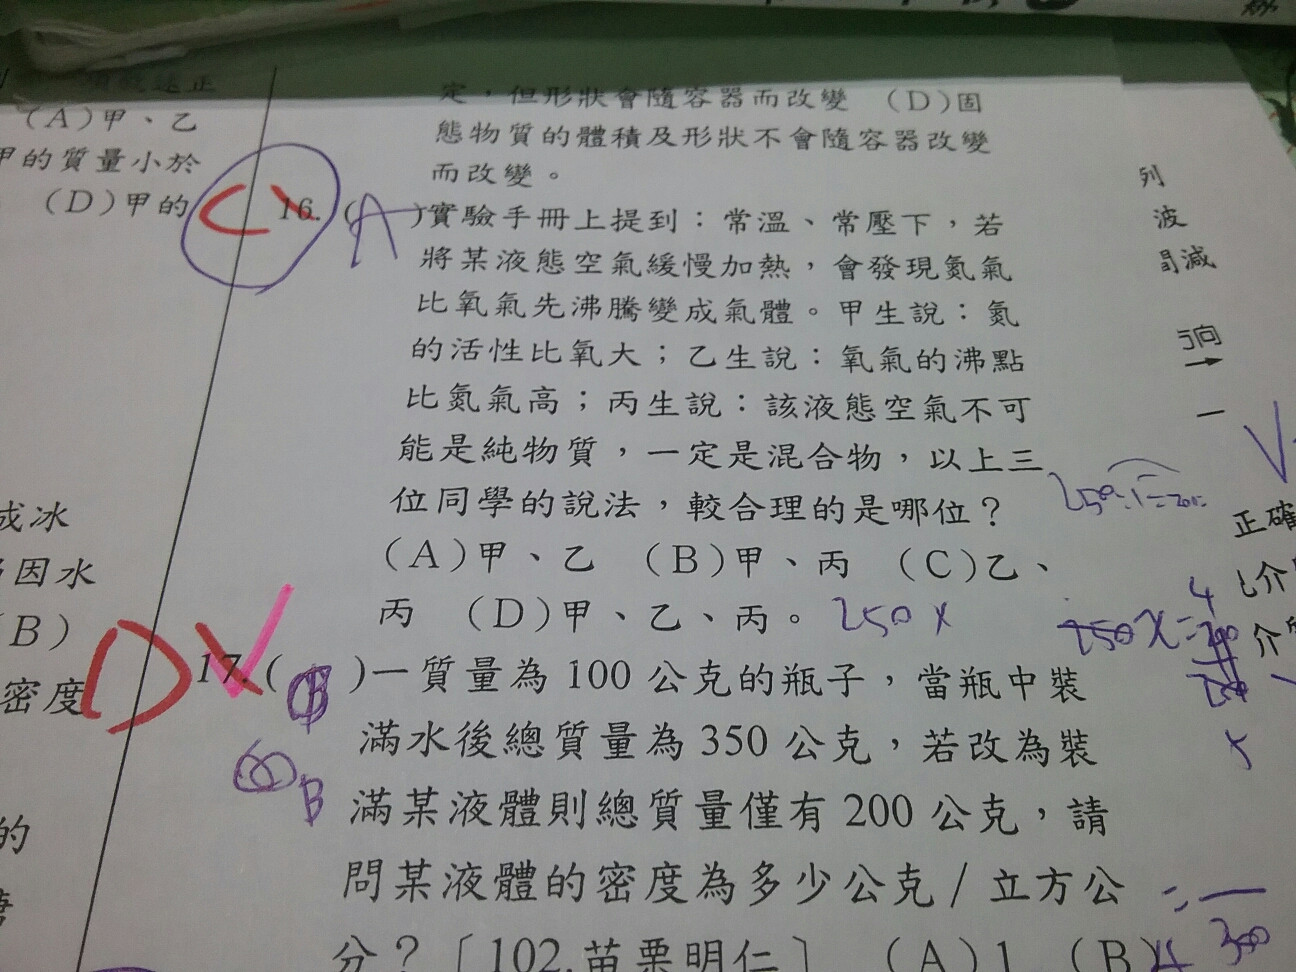 (A)甲、乙
甲的質量小於
(D)甲的
成冰
因水
B)
密度
的
定，但形狀會隨容器而改變 (D)固
態物質的體積及形狀不會隨容器改變
而改變。
16.(A)實驗手冊上提到：常溫、常壓下，若
將某液態空氣緩慢加熱，會發現氮氣
比氧氣先沸騰變成氣體。甲生說：氮
的活性比氧大；乙生說：氧氣的沸點
比氮氣高；丙生說：該液態空氣不可
能是純物質，一定是混合物，以上三
位同學的說法，較合理的是哪位？
(A)甲、乙 (B)甲、丙 (C)乙、
丙 (D)甲、乙、丙。 250 x
17.(B)一質量為100公克的瓶子，當瓶中裝
滿水後總質量為350公克，若改為裝
B 滿某液體則總質量僅有200公克，請
問某液體的密度為多少公克/立方公
分？〔102.苗栗明仁〕 (A)1 (B)
列
波
減
向
正確
介
介